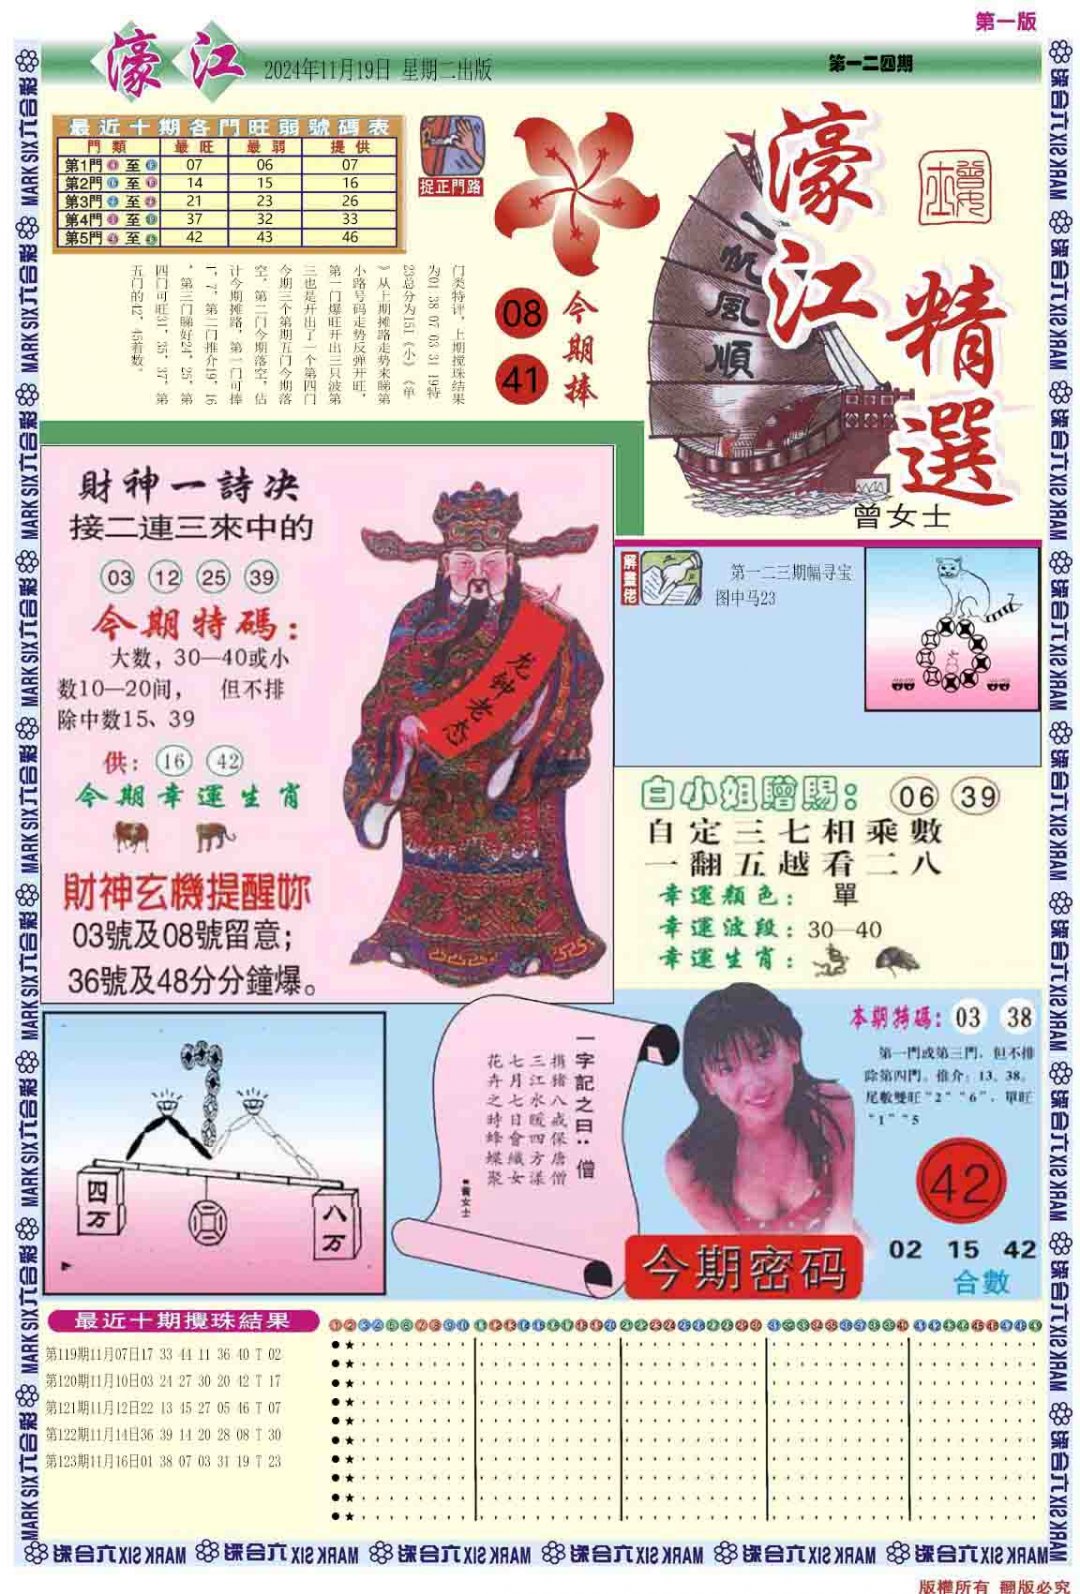 第一版
濠江
2024年11月19日 星期二出版
第一二四期
最近十期各門旺弱號碼表
門類 最旺 最弱 提供
第1門 至 07 06 07
第2門 至 14 15 16
第3門 至 21 23 26
第4門 至 37 32 33
第5門 至 42 43 46
捉正門路
门类特评，上期搅珠结果
为01 38 07 03 31 19特
23总分为151《小》《单
》从上期摊路走势来睇第
小路号码走势反弹开旺，
第一门爆旺开出三只波第
三也是开出了一个第四门
今期三个第期五门今期落
空，第二门今期落空，估
计今期摊路，第一门可捧
1，7，第二门推介19，16
，第三门睇好24，25，第
四门可旺31，35，37，第
五门的42，45着数。
08
41
今期捧
一帆風順
濠江精選
曾女士
財神一詩决
接二連三來中的
03 12 25 39
今期特碼：
大数，30—40或小
数10—20间， 但不排
除中数15、39
供：16 42
今期幸運生肖
財神玄機提醒妳
03號及08號留意；
36號及48分分鐘爆。
龙钟老态
解畫佬
第一二三期幅寻宝
图中马23
白小姐贈賜：06 39
自定三七相乘數
一翻五越看二八
幸運顏色： 單
幸運波段：30—40
幸運生肖：
四万
八万
一字記之曰：僧
捐猪八戒保唐僧
三江水暖四方漾
七月七日會織女
花卉之時蜂蝶聚
■曾女士
本期特碼：03 38
第一門或第三門，但不排
除第四門。推介：13、38。
尾數雙旺“2”“6”，單旺
“1”“5
42
今期密码
02 15 42
合數
最近十期攪珠結果
第119期11月07日17 33 44 11 36 40 T 02
第120期11月10日03 24 27 30 20 42 T 17
第121期11月12日22 13 45 27 05 46 T 07
第122期11月14日36 39 14 20 28 08 T 30
第123期11月16日01 38 07 03 31 19 T 23
MARK SIX 六合彩
版權所有 翻版必究